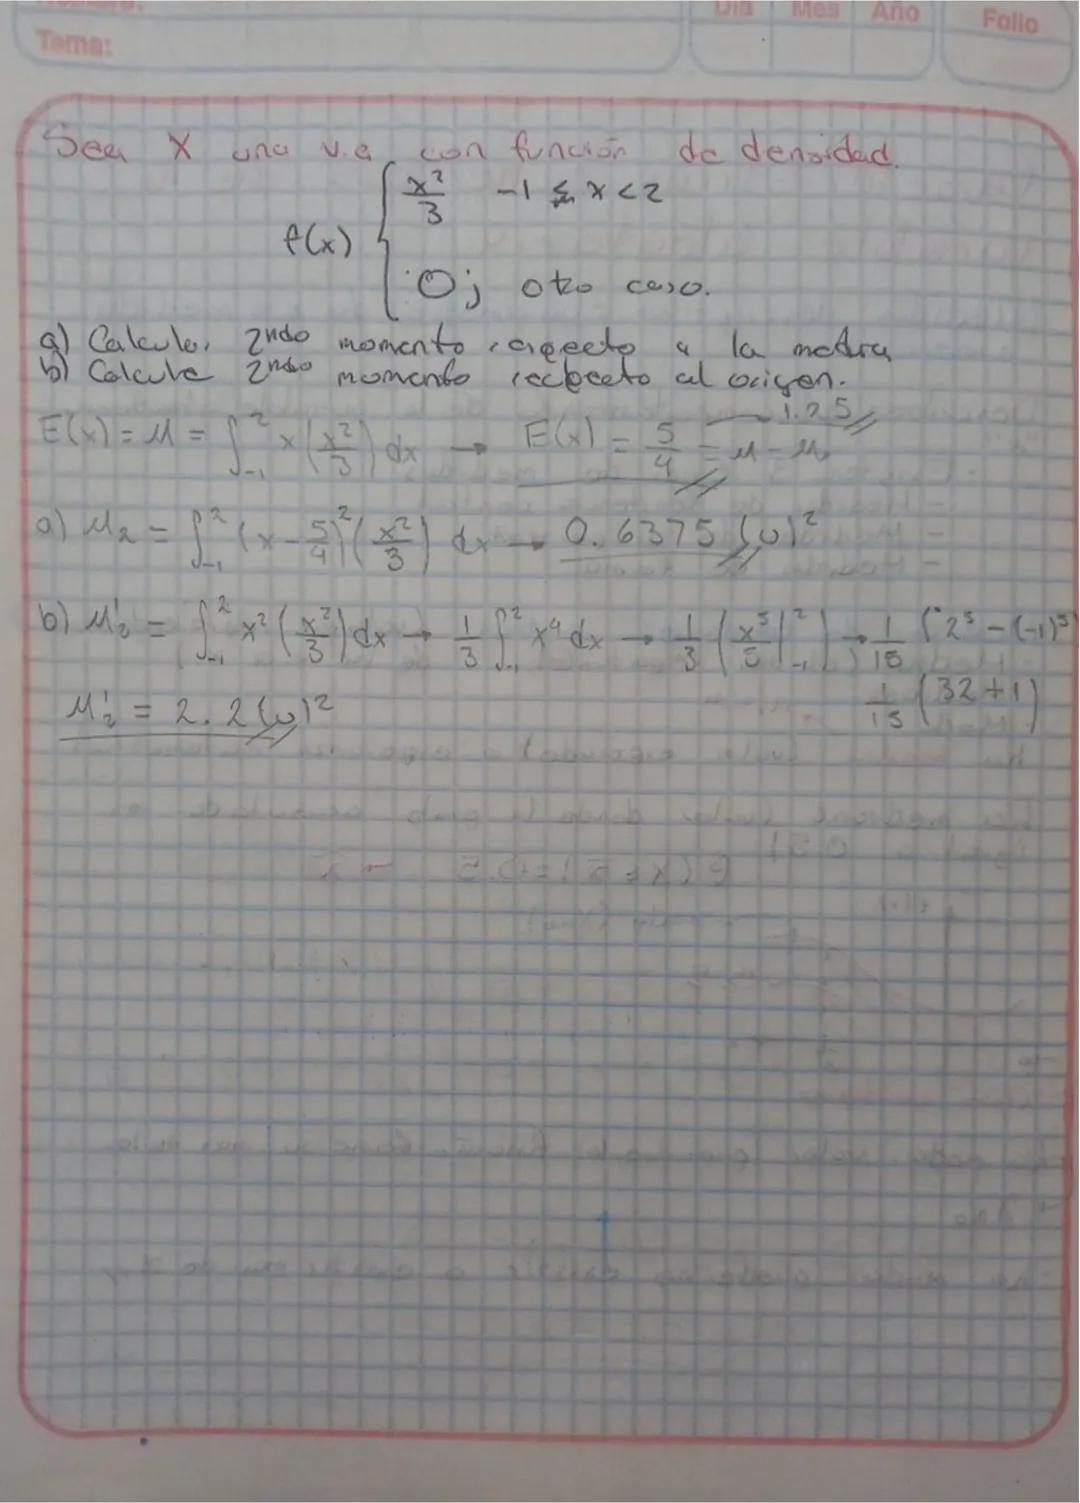 Dia Mes Año Folio
Tema:
Sea X una v.a con función de densidad.
f(x) { x²/3 -1 ≤ x < 2
0; otro caso.
a) Calcular 2ndo momento respecto a la
b) Calcule 2ndo momento respecto al origen.
E(x) = μ = ∫₋₁² x (x²/3) dx → E(x) = 5/4 = μ - 1.25
a) μ₂ = ∫₋₁² (x - 5/4)² (x²/3) dx → 0.6375 (u)²
b) μ'₂ = ∫₋₁² x² (x²/3) dx → 1/3 ∫₋₁² x⁴ dx → 1/3 (x⁵/5 |₋₁²) → 1/15 (2⁵ - (-1)⁵
1/15 (32+1)
μ'₂ = 2.2 (u)²